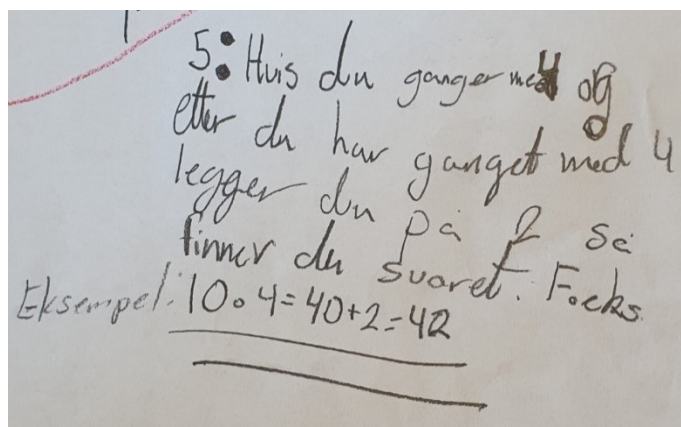 5: Hvis du ganger med 4 og
etter du har ganget med 4
legger du på 2 så
finner du svaret. F.eks.
Eksempel: 10 • 4 = 40 + 2 = 42